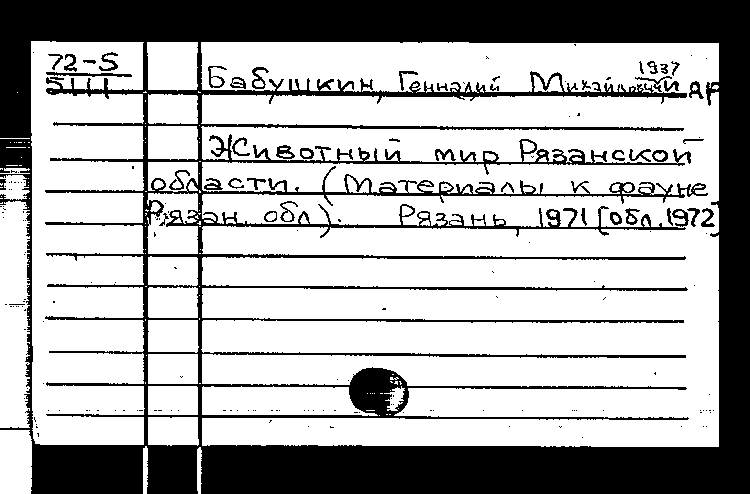 72-5
5111
1937
Бабушкин, Геннадий Михайлович и др
Животный мир Рязанской
области. (Материалы к фауне
Рязан. обл). Рязань, 1971 [обл. 1972]